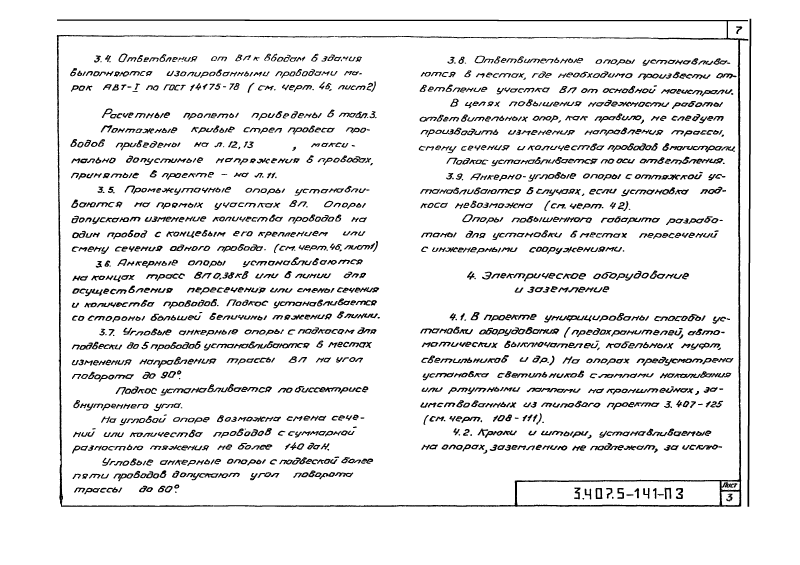 7
3.4. Ответвления от ВЛ к вводам в здания
выполняются изолированными проводами ма-
рок АВТ-I по ГОСТ 14175-78 (см. черт. 46, лист 2)
Расчетные пролеты приведены в табл.3.
Монтажные кривые стрел провеса про-
водов приведены на л.12,13 , макси-
мально допустимые напряжения в проводах,
принятые в проекте - на л.11.
3.5. Промежуточные опоры устанавли-
ваются на прямых участках ВЛ. Опоры
допускают изменение количества проводов на
один провод с концевым его креплением или
смену сечения одного провода. (см.черт.46,лист1)
3.6. Анкерные опоры устанавливаются
на концах трасс ВЛ 0,38кВ или в линии для
осуществления пересечения или смены сечения
и количества проводов. Подкос устанавливается
со стороны большей величины тяжения в линии.
3.7. Угловые анкерные опоры с подкосом для
подвески до 5 проводов устанавливаются в местах
изменения направления трассы ВЛ на угол
поворота до 90°.
Подкос устанавливается по биссектрисе
внутреннего угла.
На угловой опоре возможна смена сече-
ний или количества проводов с суммарной
разностью тяжения не более 140 даН.
Угловые анкерные опоры с подвеской более
пяти проводов допускают угол поворота
трассы до 60°.
3.8. Ответвительные опоры устанавлива-
ются в местах, где необходимо произвести от-
ветвление участка ВЛ от основной магистрали.
В целях повышения надежности работы
ответвительных опор, как правило, не следует
производить изменения направления трассы,
смену сечения и количества проводов в магистрали.
Подкос устанавливается по оси ответвления.
3.9. Анкерно-угловые опоры с оттяжкой ус-
танавливаются в случаях, если установка под-
коса невозможна (см.черт. 42).
Опоры повышенного габарита разрабо-
таны для установки в местах пересечений
с инженерными сооружениями.
4. Электрическое оборудование
и заземление
4.1. В проекте унифицированы способы ус-
тановки оборудования (предохранителей, авто-
матических выключателей, кабельных муфт,
светильников и др.) На опорах предусмотрена
установка светильников с лампами накаливания
или ртутными лампами на кронштейнах, за-
имствованных из типового проекта 3.407-125
(см.черт. 108-111).
4.2. Крюки и штыри, устанавливаемые
на опорах, заземлению не подлежат, за исклю-
3.407.5-141-ПЗ
Лист
3